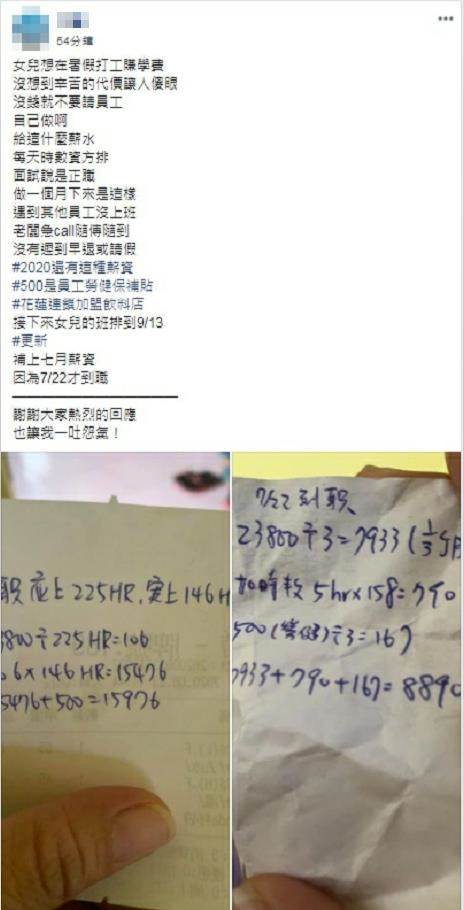 54分鐘
女兒想在暑假打工賺學費
沒想到辛苦的代價讓人傻眼
沒錢就不要請員工
自己做啊
給這什麼薪水
每天時數資方排
面試說是正職
做一個月下來是這樣
遇到其他員工沒上班
老闆急call隨傳隨到
沒有遲到早退或請假
#2020還有這種薪資
#500是員工勞健保補貼
#花蓮連鎖加盟飲料店
接下來女兒的班排到9/13
#更新
補上七月薪資
因為7/22才到職
謝謝大家熱烈的回應
也讓我一吐怨氣！
職應上225HR,实上146H
3800÷225HR=106
06x146HR=15476
5476+500=15976
7/22到职
23800÷3=7933(1/3
加時数5hrx158=790
500(勞健)÷3=167
7933+790+167=8890